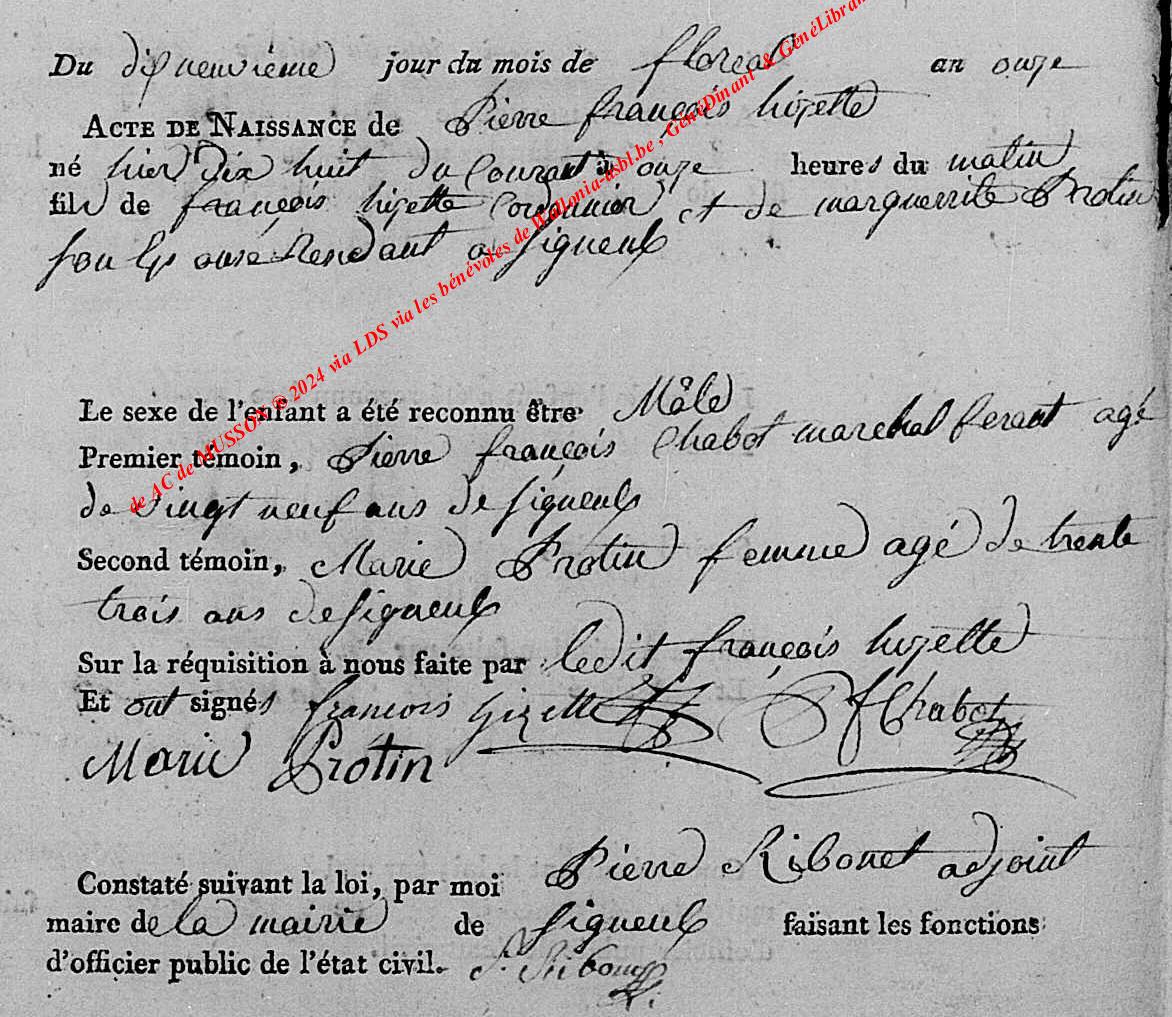 Du dixneuvième jour du mois de floreal an onze
ACTE DE NAISSANCE de Pierre françois hizette
né hier dix huit du Courant à onze heures du matin
fils de françois hizette Cordonnier et de marguerite Protin
son Epouse Residant a signeulx
Le sexe de l'enfant a été reconnu être Mâle
Premier témoin, Pierre françois Chabot marechal ferant agé
de vingt neuf ans de signeulx
Second témoin, Marie Protin femme agé de trente
trois ans de signeulx
Sur la réquisition à nous faite par ledit françois hizette
Et ont signés francois hizette P f Chabot
Marie Protin
Constaté suivant la loi, par moi Pierre Ribonet adjoint
maire de la mairie de signeulx faisant les fonctions
d'officier public de l'état civil. P. Ribonet
de AC de MUSSON ® 2024 via LDS via les bénévoles de Wallonia-asbl.be , GénéDinant & GénéLibran